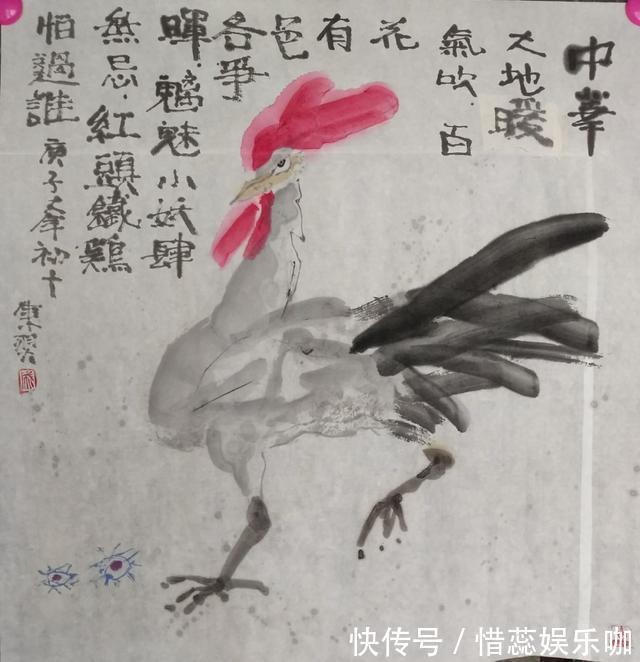 中華
大地暖
氣吹.百
花
有
色
各爭
暉.魑魅小妖肆
無忌.紅頭鐵鷄
怕過誰
庚子春初十
快传号/惜蕊娱乐咖